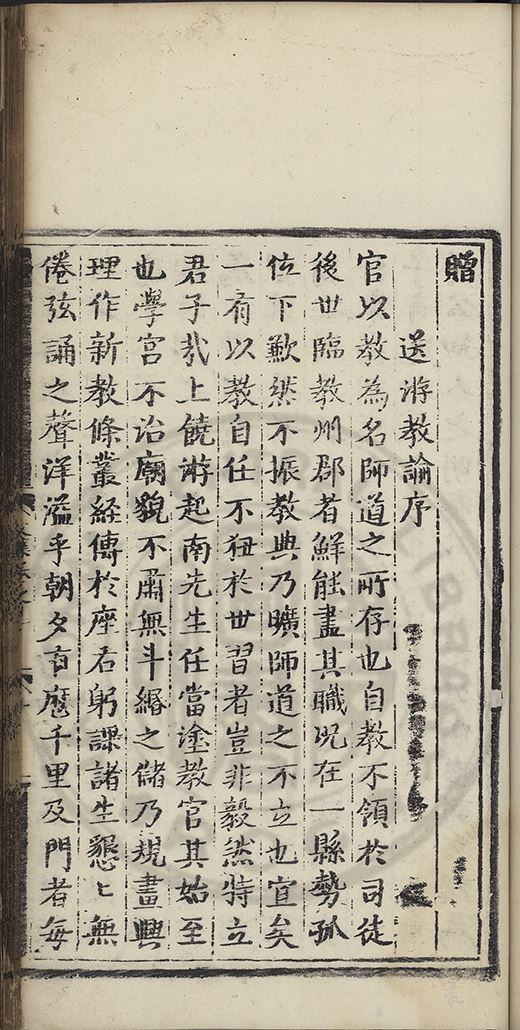 贈
送游教諭序
官以教為名師道之所存也自教不領於司徒
後世臨教州郡者鮮能盡其職况在一縣勢孤
位下歉然不振教典乃曠師道之不立也宜矣
一有以教自任不狃於世習者豈非毅然特立
君子哉上饒游起南先生任當塗教官其始至
也學宮不治廟貌不肅無斗緡之儲乃規畫興
理作新教條叢經傳於座右躬課諸生懇〻無
倦弦誦之聲洋溢乎朝夕有麽千里及門者每